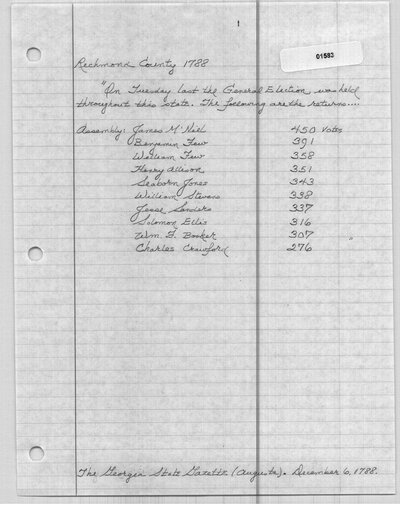 01583
Richmond County 1788
"On Tuesday last the General Election was held
throughout this state. The following are the returns....
Assembly: James M'Niel 450 Votes
Benjamin Few 391
William Few 358
Henry Allison 351
Seaborn Jones 343
William Stevens 338
Jesse Sanders 337
Solomon Ellis 316
Wm. F. Booker 307 "
Charles Crawford 276
The Georgia State Gazette (Augusta). December 6, 1788.